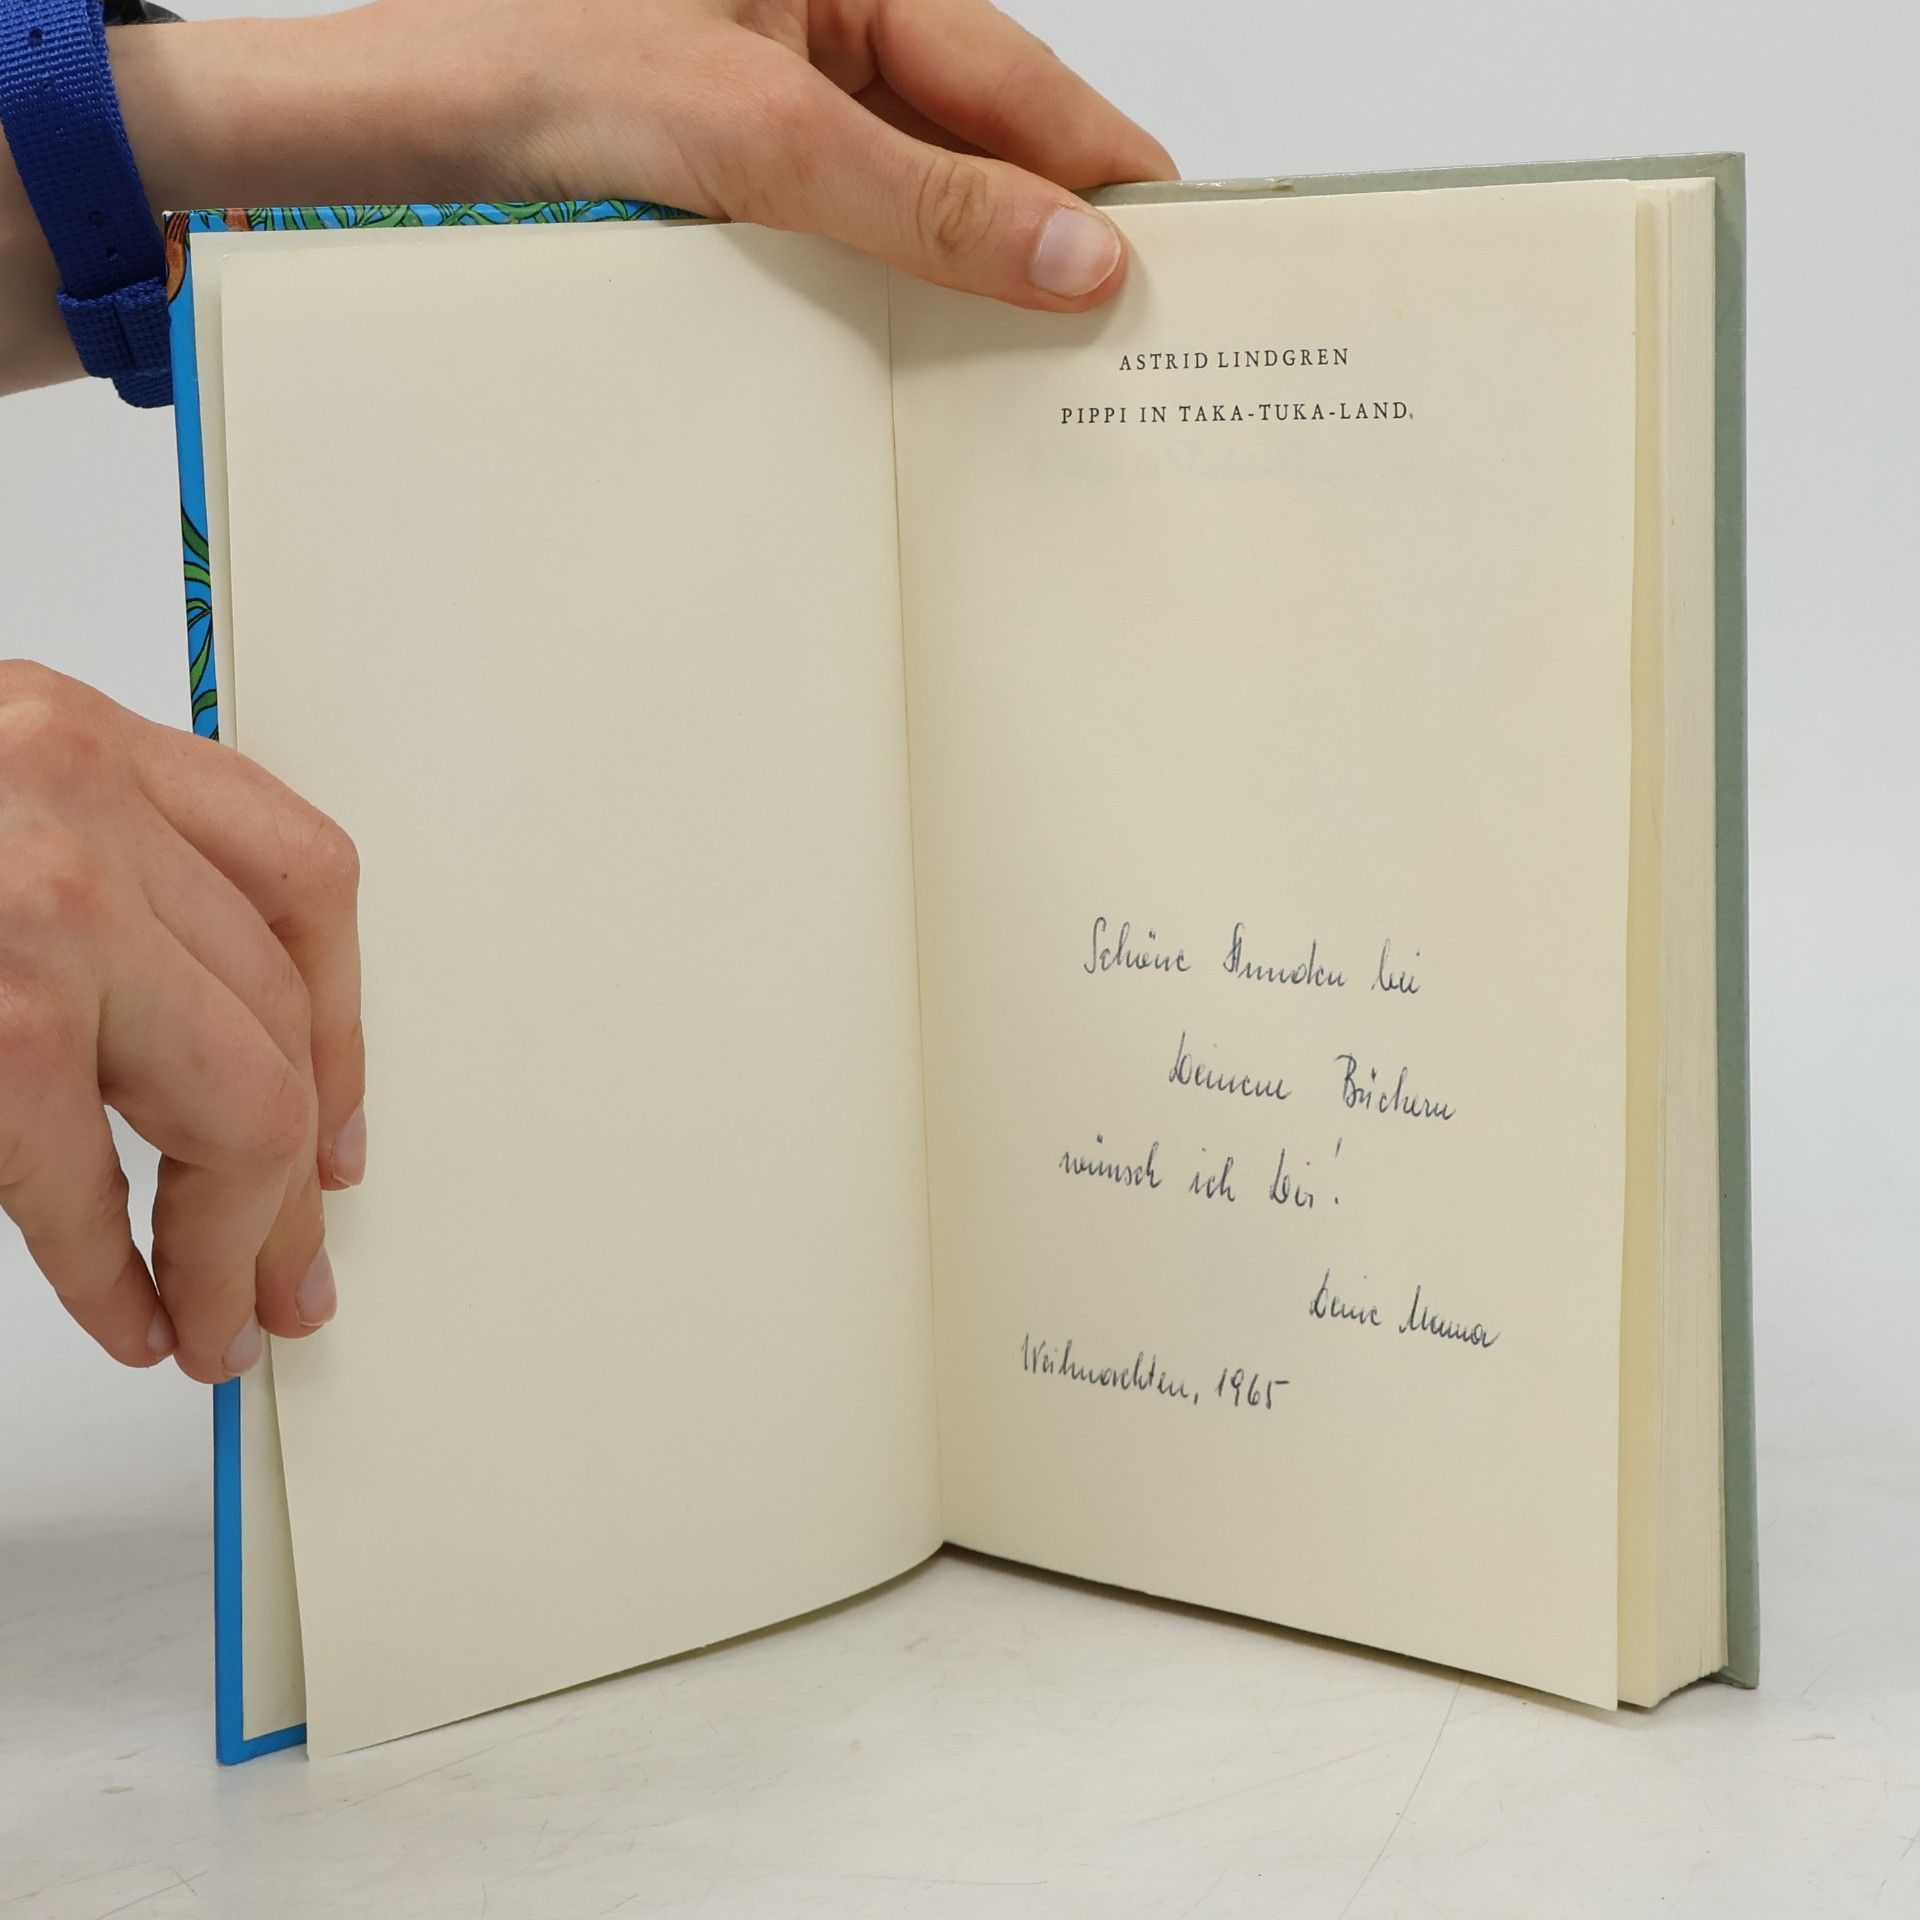 ASTRID LINDGREN
PIPPI IN TAKA-TUKA-LAND
Schöne Stunden bei
Deinen Büchern
wünsch ich Dir!
Deine Mama
Weihnachten, 1965